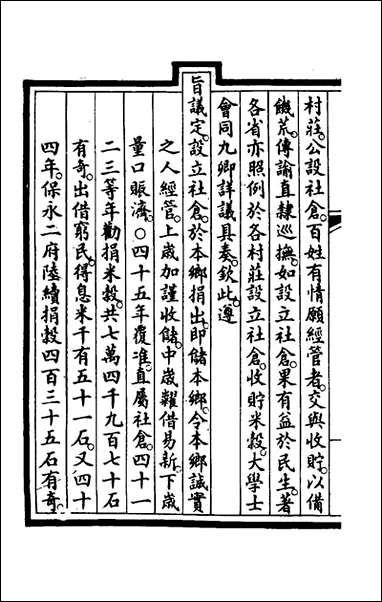 村莊公設社倉百姓有情願經管者交與收貯以備
饑荒傳諭直隸巡撫如設立社倉果有益於民生著
各省亦照例於各村莊設立社倉收貯米穀大學士
會同九卿詳議具奏欽此遵
旨議定設立社倉於本鄉捐出即儲本鄉令本鄉誠實
之人經管上歲加謹收儲中歲糶借易新下歲
量口賑濟○四十五年覆准直屬社倉四十一
二三等年勸捐米穀共七萬四千九百七十石
有奇出借窮民得息米千有五十一石又四十
四年保永二府陸續捐穀四百三十五石有奇